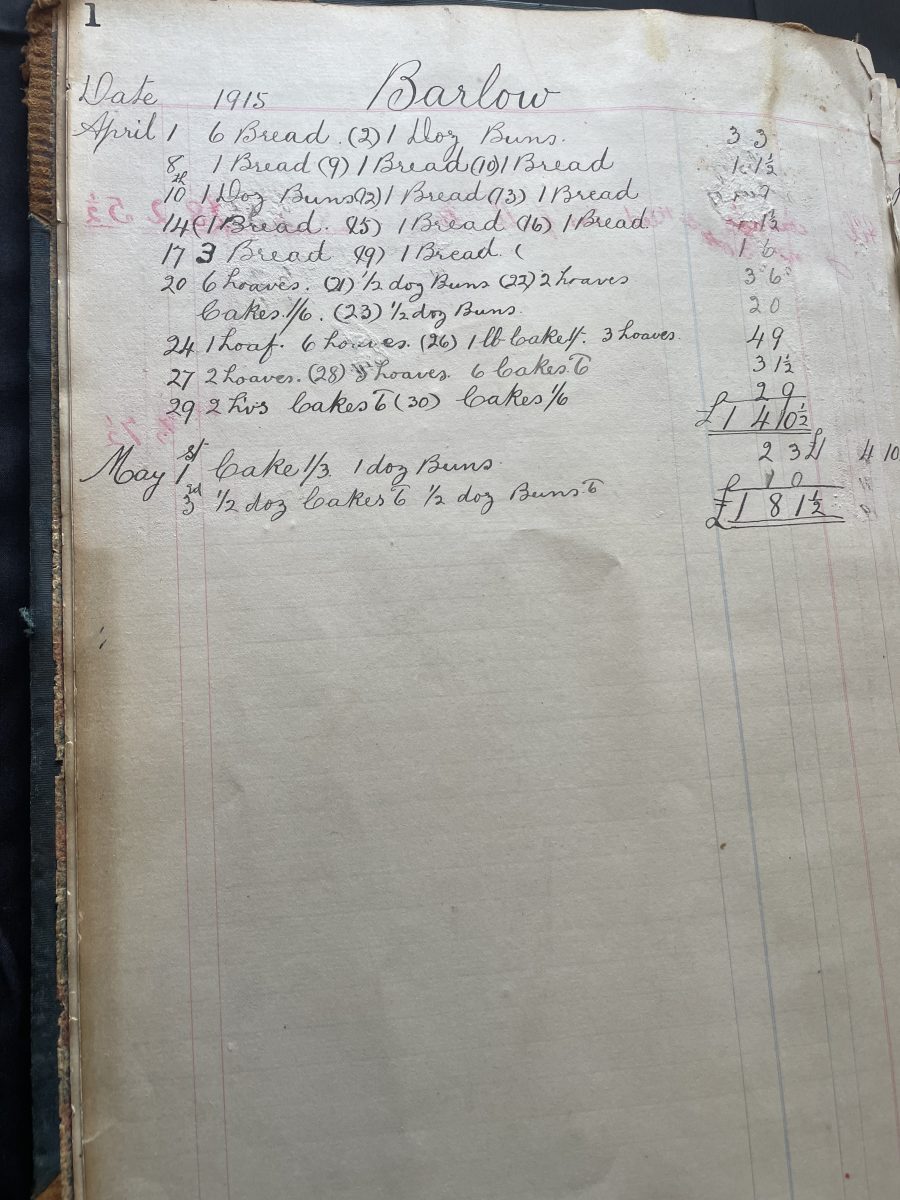 1
Date 1915 Barlow
April 1 6 Bread. (2) 1 Doz Buns. 3 3
8 1 Bread (9) 1 Bread (10) 1 Bread 1 1½
10th 1 Doz Buns (12) 1 Bread (13) 1 Bread 9
14 (1 Bread. (15) 1 Bread (16) 1 Bread 1½
17 3 Bread (19) 1 Bread. ( 1 6
20 6 Loaves. (21) ½ doz Buns (22) 2 Loaves 3 6
Cakes 1/6. (23) ½ doz Buns. 2 0
24 1 Loaf. 6 Loaves. (26) 1 lb Cake 1/. 3 Loaves. 4 9
27 2 Loaves. (28) 3 Loaves. 6 Cakes 6 3 1½
29 2 Lvs Cakes 6 (30) Cakes 1/6 2 9
£1 4 10½
May 1st Cake 1/3. 1 doz Buns. 2 3 £1 4 10
3rd ½ doz Cakes 6 ½ doz Buns 6 1 0
£1 8 1½